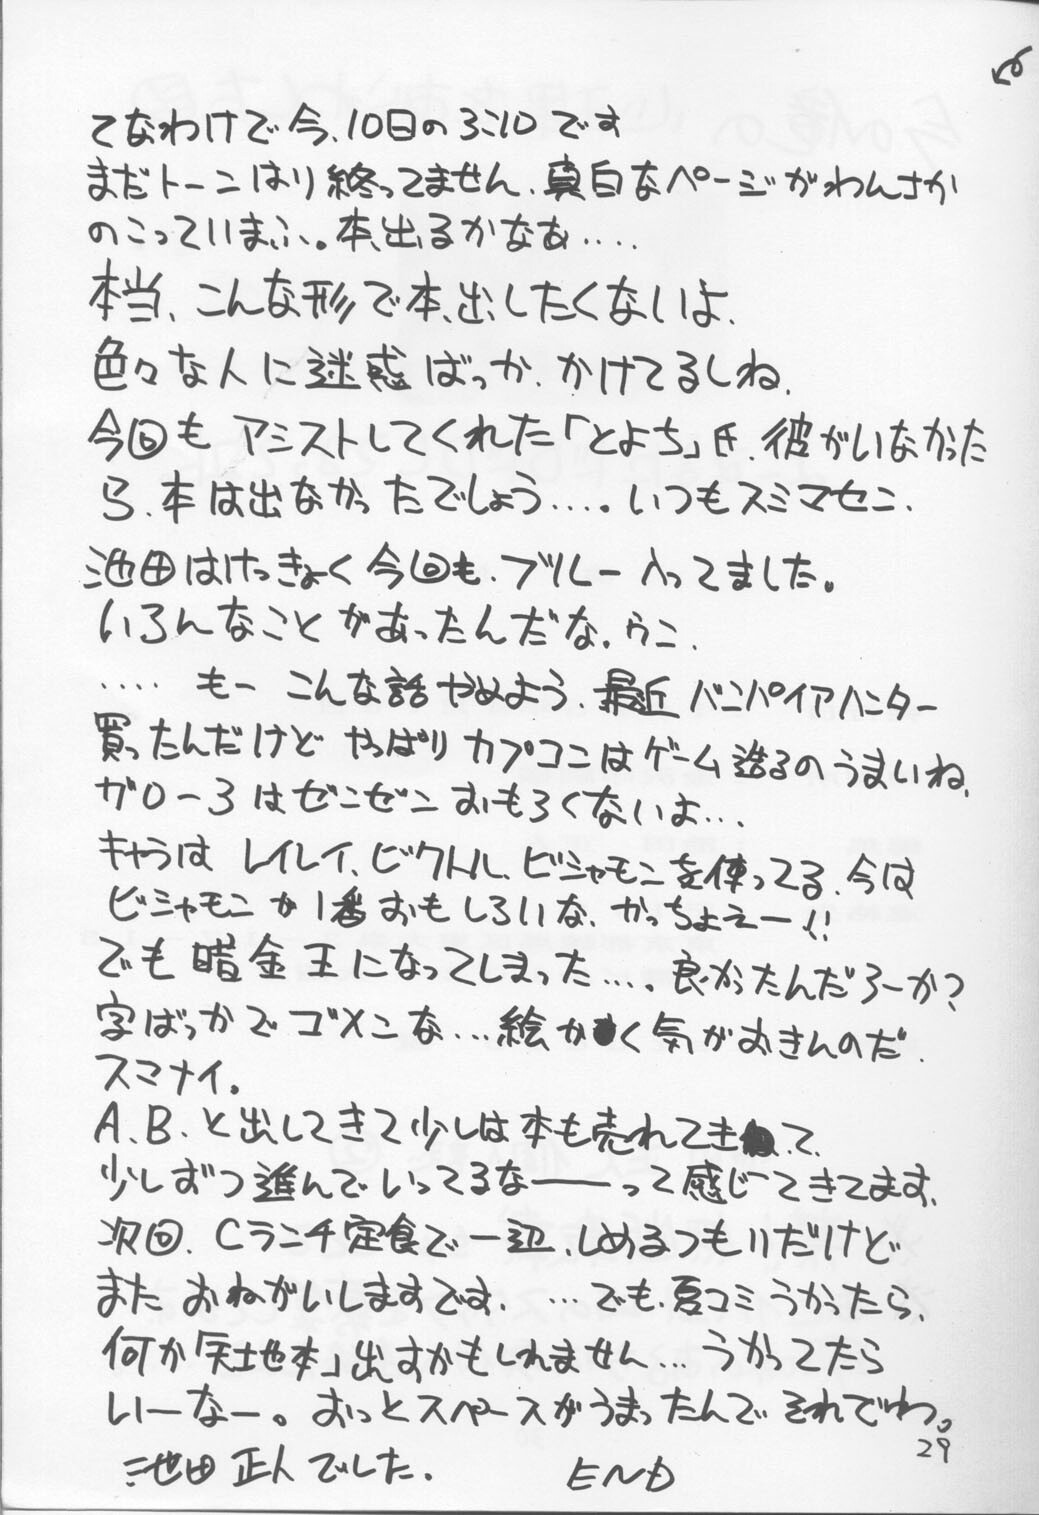 てなわけで今、10日の3:10です
まだトーンはり終ってません、真白なページがわんさか
のこっていまふ。本、出るかなぁ‥‥
本当、こんな形で本、出したくないよ、
色々な人に迷惑ばっか、かけてるしね、
今回もアシストしてくれた「とよち」氏、彼がいなかった
ら、本は出なかったでしょう‥‥。いつもスミマセン、
池田はけっきょく今回も、ブルー入ってました。
いろんなことがあったんだな。ウン、
‥‥ もー こんな話やめよう、最近バンパイアハンター
買ったんだけど やっぱりカプコンはゲーム造るのうまいね、
ガロー3はゼンゼンおもろくないよ…
キャラは レイレイ、ビクトル、ビシャモンを使ってる、今は
ビシャモンが1番おもしろいな、かっちょえー!!
でも暗金王になってしまった…。良かったんだろーか?
字ばっかでゴメンな…絵かく気がおきんのだ、
スマナイ。
A、B、と出してきて少しは本も売れてきて、
少しずつ進んでいってるなーーって感じてきてます、
次回、Cランチ定食で一辺、しめるつもりだけど
また おねがいしますです、…でも、夏コミうかったら、
何か「天地本」出すかもしれません…うかってたら
いーなー。おっとスペースがうまったんで それでわ。
29
池田正人でした. END